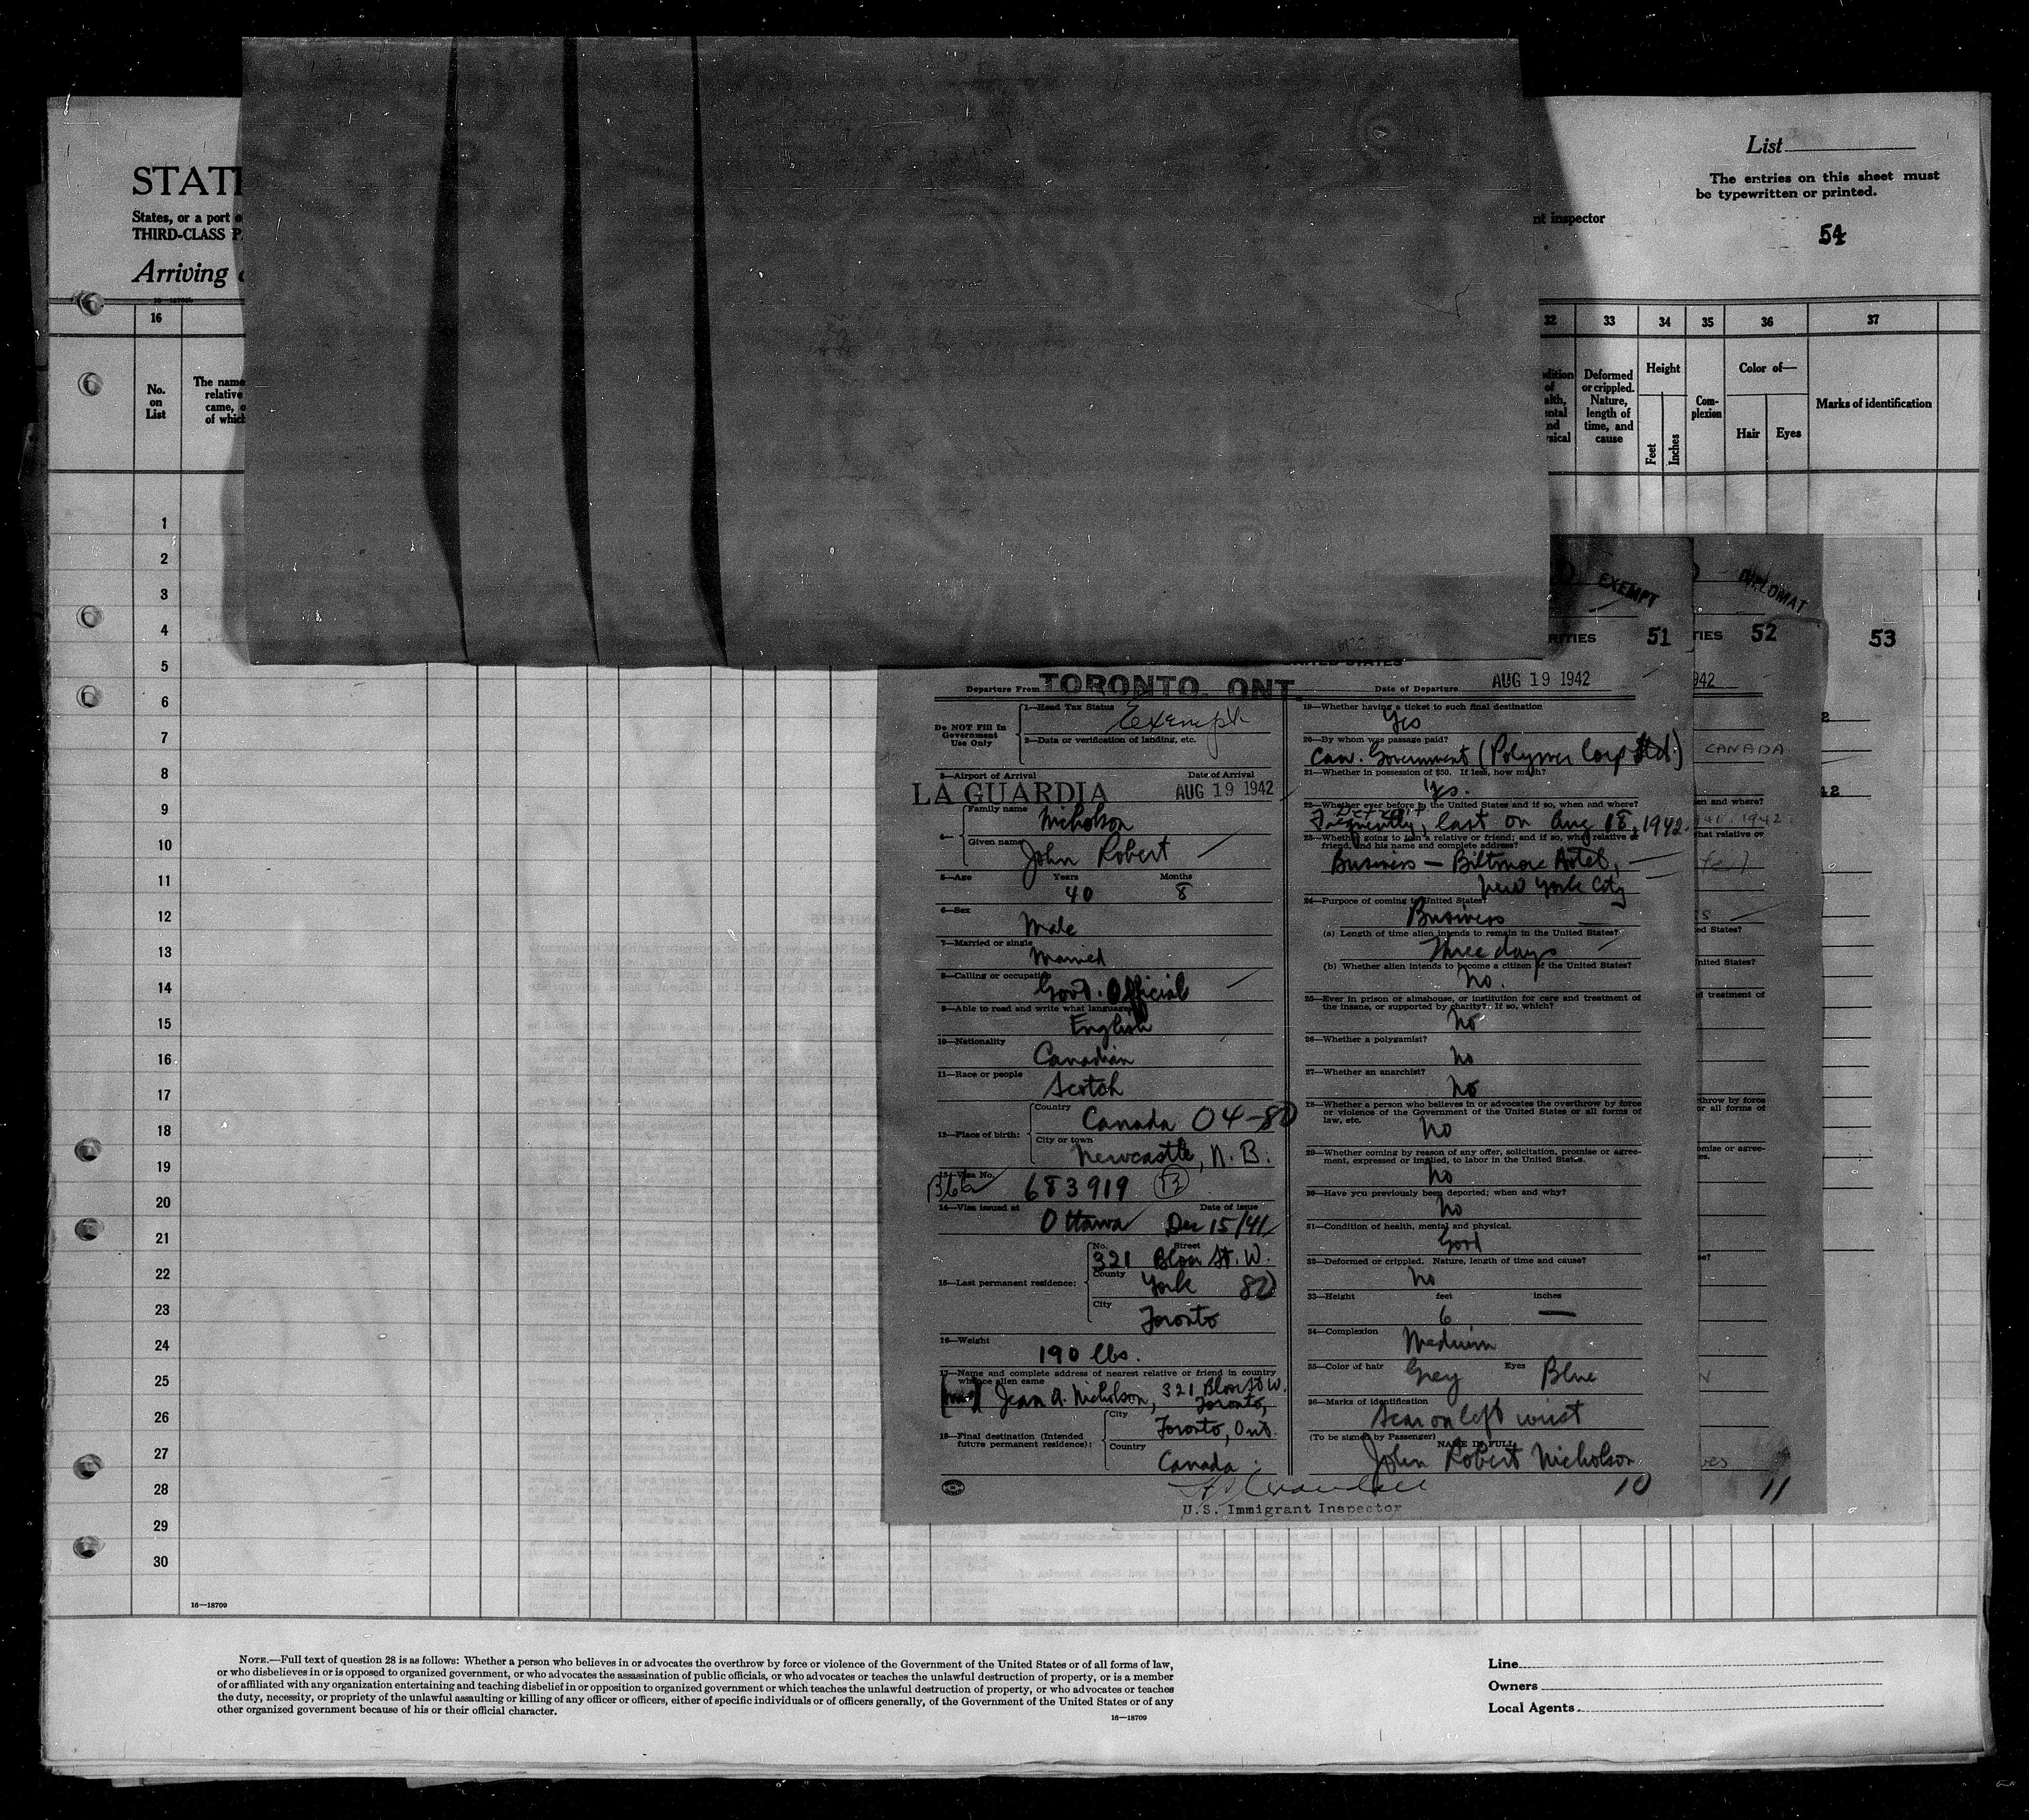 STAT
States, or a port o
THIRD-CLASS P
Arriving
16—18709
List
The entries on this sheet must
be typewritten or printed.
nt inspector
54
16
32
33
34
35
36
37
No.
on
List
The name
relative
came, o
of which
Deformed
or crippled.
Nature,
length of
time, and
cause
Height
Feet
Inches
Com-
plexion
Color of—
Hair
Eyes
Marks of identification
1
2
3
4
5
6
7
8
9
10
11
12
13
14
15
16
17
18
19
20
21
22
23
24
25
26
27
28
29
30
16—18709
EXEMPT
RITIES 51
DIPLOMAT
TIES 52
53
UNITED STATES
Departure From TORONTO, ONT.
Date of Departure AUG 19 1942
Do NOT Fill In
Government
Use Only
1—Head Tax Status
Exempt
2—Data or verification of landing, etc.
3—Airport of Arrival
Date of Arrival
LA GUARDIA AUG 19 1942
4—
Family name
Nicholson
Given name
John Robert
5—Age Years Months
40 8
6—Sex
Male
7—Married or single
Married
8—Calling or occupation
Govt. Official
9—Able to read and write what languages
English
10—Nationality
Canadian
11—Race or people
Scotch
12—Place of birth:
Country
Canada 04-80
City or town
Newcastle, N.B.
13—Visa No.
683919
14—Visa issued at
Date of issue
Ottawa Dec 15/41
15—Last permanent residence:
No. Street
321 Bloor St. W.
County
York 82
City
Toronto
16—Weight
190 lbs.
17—Name and complete address of nearest relative or friend in country
whence alien came
Jean A. Nicholson, 321 Bloor St W.
Toronto,
18—Final destination (Intended
future permanent residence):
City
Toronto, Ont.
Country
Canada
U.S. Immigrant Inspector
19—Whether having a ticket to such final destination
Yes
20—By whom was passage paid?
Can. Government (Polymer Corp Ltd)
21—Whether in possession of $50. If less, how much?
Yes.
22—Whether ever before in the United States and if so, when and where?
Frequently, last on Aug 18, 1942.
23—Whether going to join a relative or friend; and if so, what relative or
friend, and his name and complete address?
Business — Biltmore Hotel,
New York City
24—Purpose of coming to United States?
Business
(a) Length of time alien intends to remain in the United States?
Three days
(b) Whether alien intends to become a citizen of the United States?
No.
25—Ever in prison or almshouse, or institution for care and treatment of
the insane, or supported by charity? If so, which?
No
26—Whether a polygamist?
No
27—Whether an anarchist?
No
28—Whether a person who believes in or advocates the overthrow by force
or violence of the Government of the United States or all forms of
law, etc.
No
29—Whether coming by reason of any offer, solicitation, promise or agree-
ment, expressed or implied, to labor in the United States.
No
30—Have you previously been deported; when and why?
No
31—Condition of health, mental and physical.
Good
32—Deformed or crippled. Nature, length of time and cause?
No
33—Height feet inches
6 —
34—Complexion
Medium
35—Color of hair Grey Eyes Blue
36—Marks of identification
Scar on left wrist
(To be signed by Passenger)
NAME IN FULL
John Robert Nicholson
10
942
CANADA
en and where?
1942
hat relative or
ed States?
nited States?
d treatment of
throw by force
or all forms of
omise or agree-
es.
11
NOTE.—Full text of question 28 is as follows: Whether a person who believes in or advocates the overthrow by force or violence of the Government of the United States or of all forms of law,
or who disbelieves in or is opposed to organized government, or who advocates the assassination of public officials, or who advocates or teaches the unlawful destruction of property, or is a member
of or affiliated with any organization entertaining and teaching disbelief in or opposition to organized government or which teaches the unlawful destruction of property, or who advocates or teaches
the duty, necessity, or propriety of the unlawful assaulting or killing of any officer or officers, either of specific individuals or of officers generally, of the Government of the United States or of any
other organized government because of his or their official character.
16—18709
Line
Owners
Local Agents